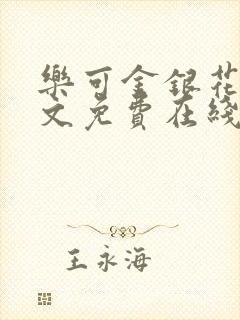 樂可金銀花
文免費在綫
王永海